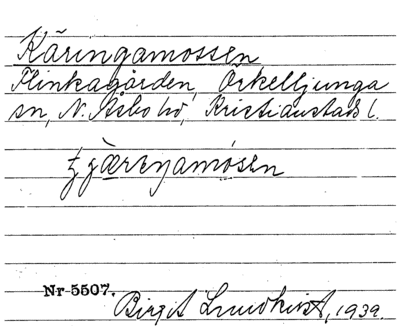 Käringamossen
Flinkagården, Örkelljunga
sn, N. Åsbo hd, Kristianstads l.
kjärengamosen
Nr 5507.
Birgit Lundkvist, 1939.